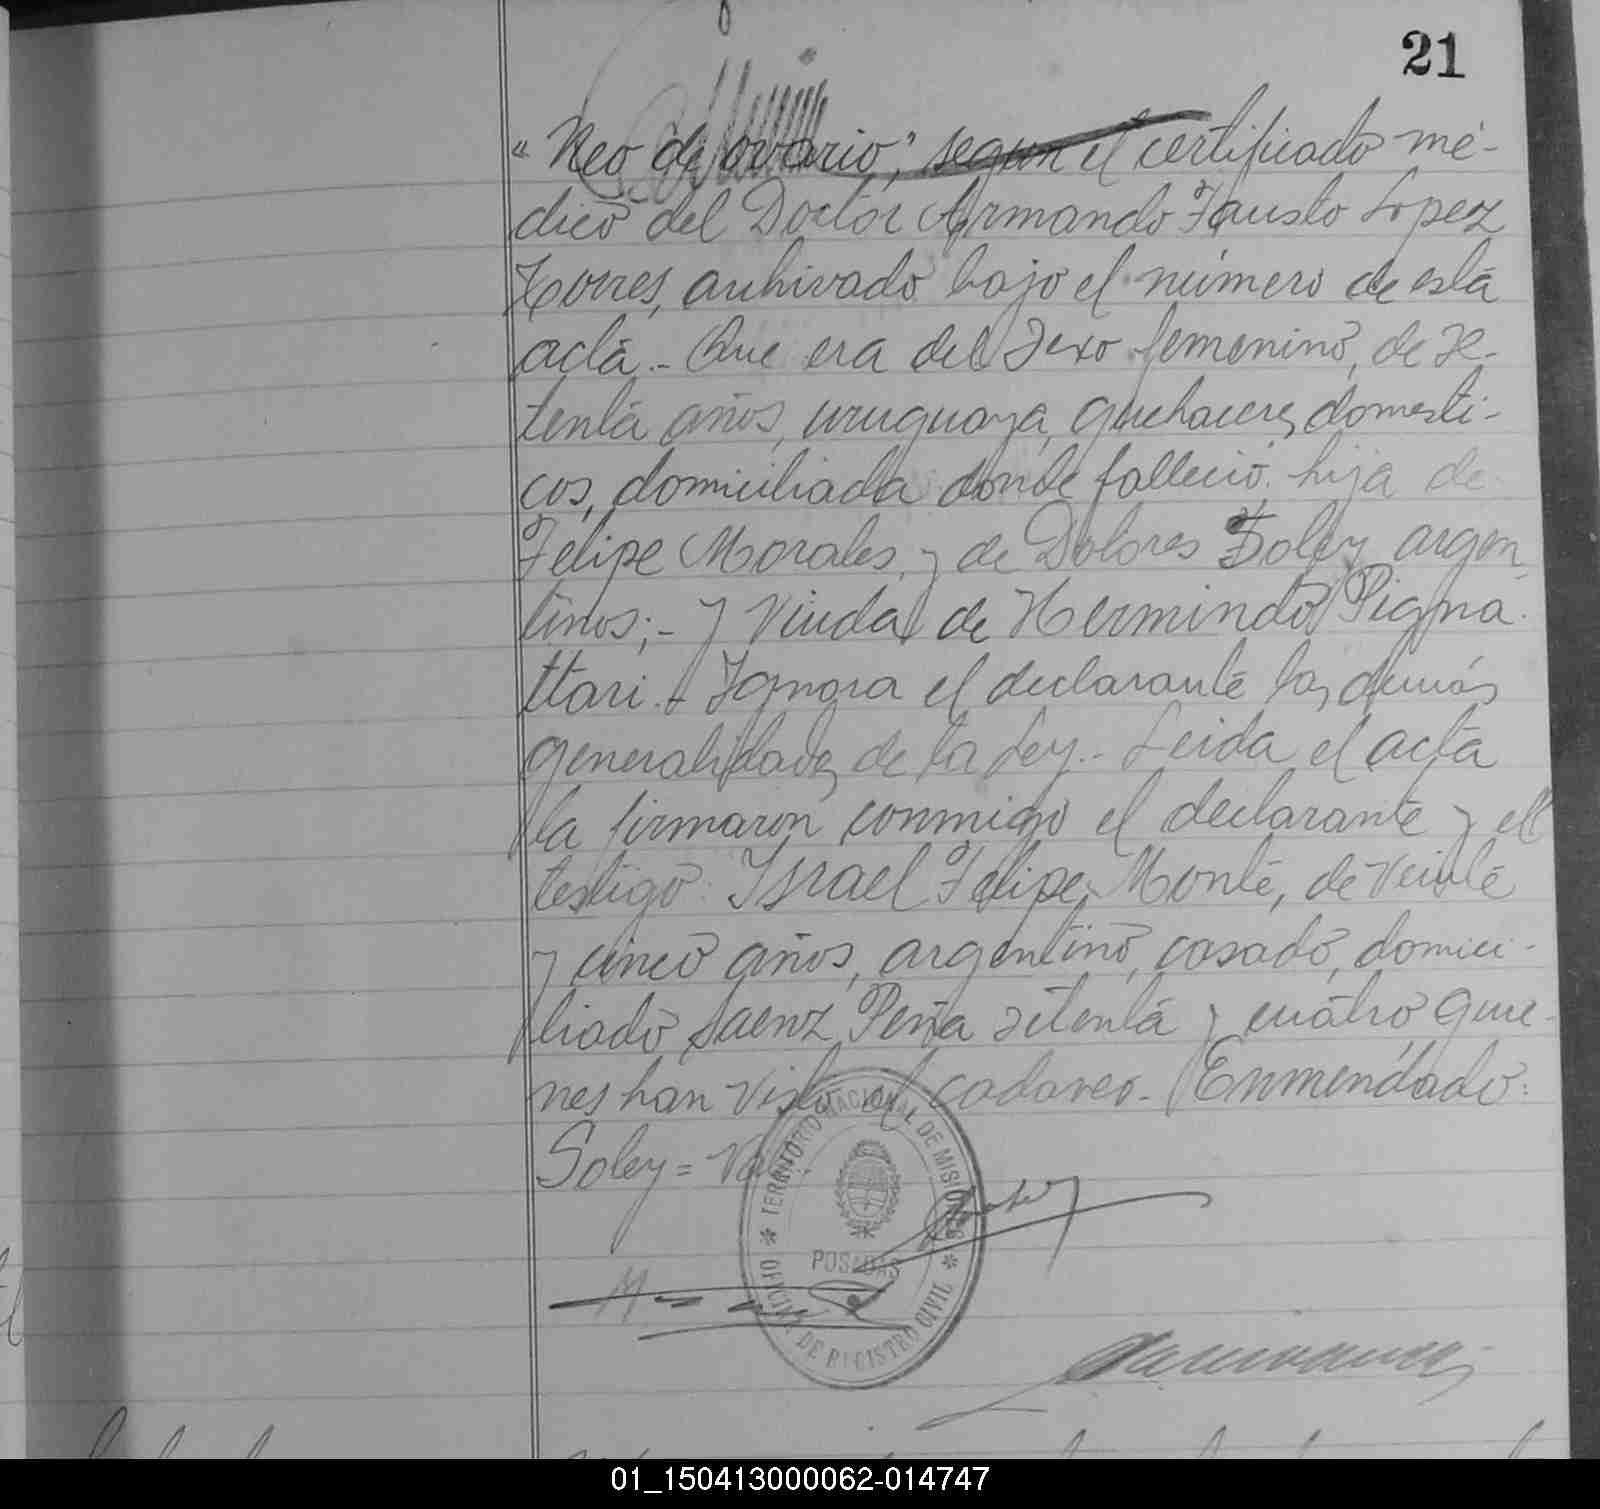 21
"Neo de ovario," segun el certificado mé-
dico del Doctor Armando Fausto Lopez
Torres, archivado bajo el número de esta
acta.- Que era del sexo femenino, de se-
tenta años, uruguaya, quehaceres domesti-
cos, domiciliada donde falleció, hija de
Felipe Morales, y de Dolores Soley, argen-
tinos;- y Viuda de Hermindo Pigna-
ttari.- Ignora el declarante las demás
generalidades de la Ley.- Leida el acta
la firmaron conmigo el declarante y el
testigo: Israel Felipe Monte, de veinte
y cinco años, argentino, casado, domici-
liado Saenz Peña setenta y cuatro quie-
nes han visto el cadaver.- Enmendado:
Soley=
TERRITORIO NACIONAL DE MISIONES
POSADAS
OFICINA DE REGISTRO CIVIL
01_150413000062-014747